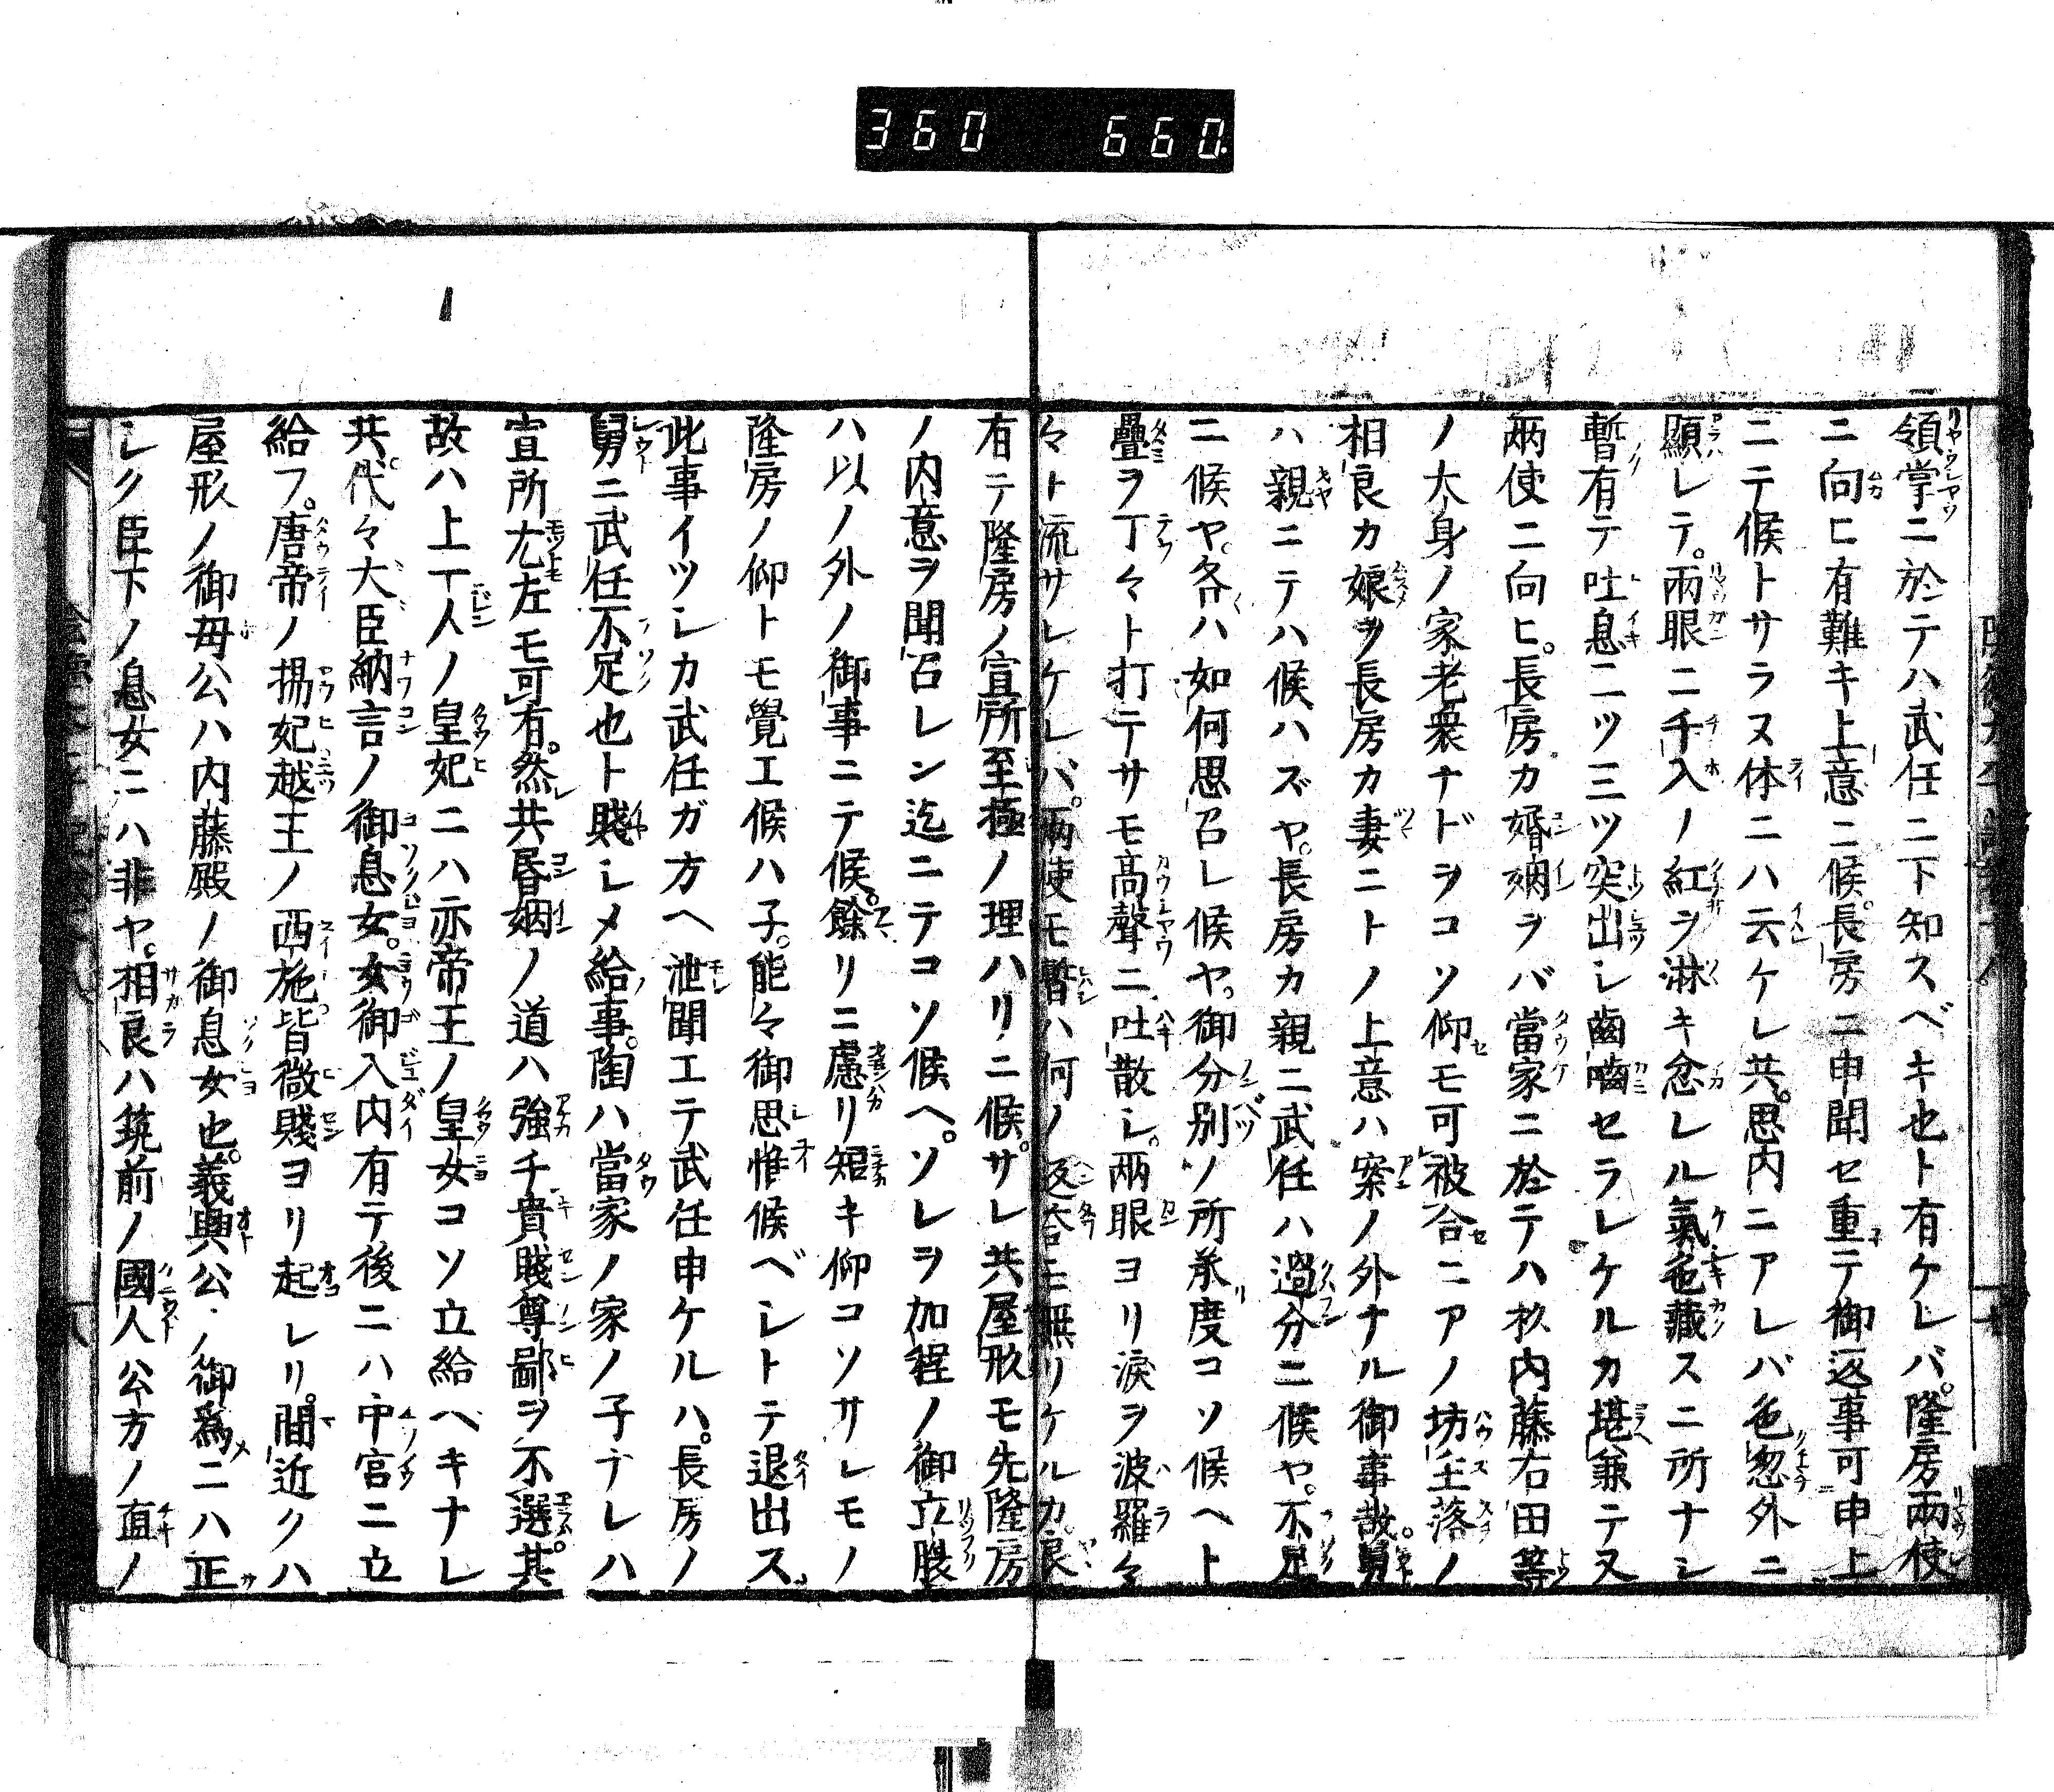 360 660.
領掌ニ於テハ武任ニ下知スベキ也ト有ケレバ。隆房兩使
ニ向ヒ有難キ上意ニ候。長房ニ申聞セ重テ御返事可申上
ニテ候トサラヌ体ニハ云ケレ共。思内ニアレバ色忽外ニ
顯レテ。兩眼ニ千入ノ紅ヲ淋キ忿レル氣色藏スニ所ナシ
暫有テ吐息二ツ三ツ突出シ齒嚙セラレケルカ堪兼テ又
兩使ニ向ヒ。長房カ婚姻ヲバ當家ニ於テハ杉内藤右田等
ノ大身ノ家老衆ナドヲコソ仰モ可被合ニアノ坊主落ノ
相良カ娘ヲ長房カ妻ニトノ上意ハ案ノ外ナル御事哉。舅
ハ親ニテハ候ハズヤ。長房カ親ニ武任ハ過分ニ候ヤ。不足
ニ候ヤ。各ハ如何思召レ候ヤ。御分別ノ所承度コソ候ヘト
疊ヲ丁々ト打テサモ高聲ニ吐散シ。兩眼ヨリ淚ヲ波羅々
々ト流サレケレバ。兩使モ暫ハ何ノ返答モ無リケルカ。良
有テ隆房ノ宣所至極ノ理ハリニ候。サレ共屋形モ先隆房
ノ内意ヲ聞召レン迄ニテコソ候ヘ。ソレヲ加程ノ御立腹
ハ以ノ外ノ御事ニテ候。餘リニ慮リ短キ仰コソサレモノ
隆房ノ仰トモ覺エ候ハ子。能々御思惟候ベシトテ退出ス
此事イツシカ武任ガ方ヘ泄聞エテ武任申ケルハ。長房ノ
舅ニ武任不足也ト賤シメ給事。陶ハ當家ノ家ノ子ナレハ
宣所尤左モ可有。然共昏姻ノ道ハ強チ貴賤尊鄙ヲ不選。其
故ハ上一人ノ皇妃ニハ亦帝王ノ皇女コソ立給ヘキナレ
共。代々大臣納言ノ御息女。女御入内有テ後ニハ中宮ニ立
給フ。唐帝ノ揚妃越王ノ西施皆微賤ヨリ起レリ。間近クハ
屋形ノ御母公ハ内藤殿ノ御息女也。義興公ノ御爲ニハ正
シク臣下ノ息女ニハ非ヤ。相良ハ筑前ノ國人公方ノ直ノ